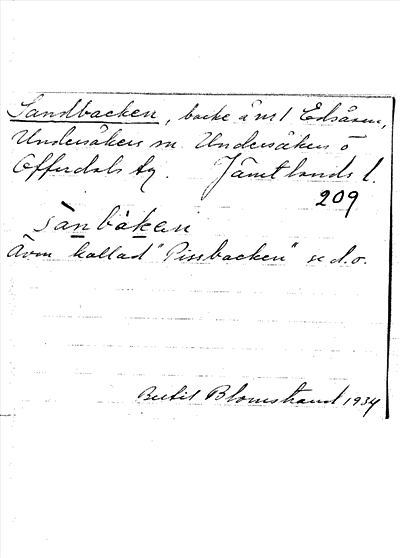 Sandbacken, backe å nr 1 Edsåsen,
Undersåkers sn. Undersåkers o
Offerdals tg. Jämtlands l.
209
sànbákan
Även kallad "Pissbacken" se d.o.
Bertil Blomstrand 1934